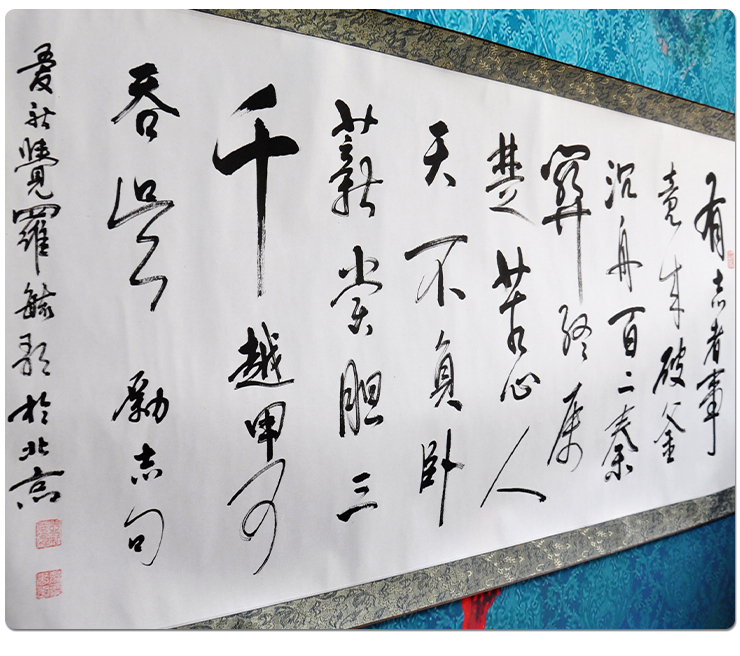 有志者事
竟成破釜
沉舟百二秦
關终属
楚苦心人
天不負卧
薪尝胆三
千越甲可
吞吴 勵志句
爱新覺羅毓 於北京